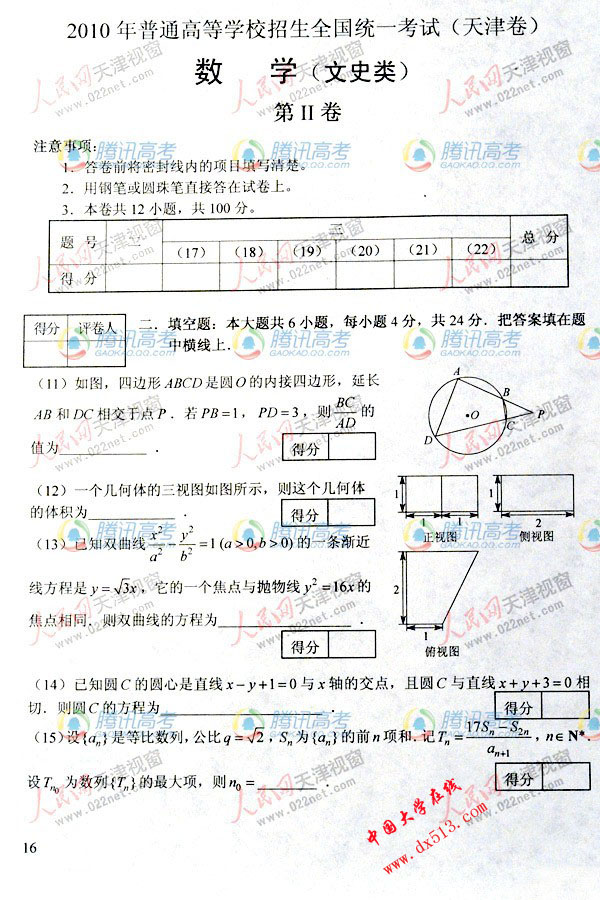 2010 年普通高等学校招生全国统一考试（天津卷）
数 学（文史类）
第 II 卷
注意事项：
1．答卷前将密封线内的项目填写清楚。
2．用钢笔或圆珠笔直接答在试卷上。
3．本卷共 12 小题，共 100 分。
题 号 二 三 总 分
（17） （18） （19） （20） （21） （22）
得 分
得分 评卷人
二．填空题：本大题共 6 小题，每小题 4 分，共 24 分．把答案填在题
中横线上．
（11）如图，四边形 ABCD 是圆 O 的内接四边形，延长
AB 和 DC 相交于点 P．若 PB=1，PD=3，则 BC/AD 的
值为____________．
得分
A
B
O
P
C
D
（12）一个几何体的三视图如图所示，则这个几何体
的体积为____________．
得分
1
1 1
正视图
1
2
侧视图
（13）已知双曲线 x²/a² − y²/b² =1 (a>0,b>0) 的一条渐近
线方程是 y=√3x，它的一个焦点与抛物线 y²=16x 的
焦点相同．则双曲线的方程为____________．
得分
2
1
俯视图
（14）已知圆 C 的圆心是直线 x−y+1=0 与 x 轴的交点，且圆 C 与直线 x+y+3=0 相
切．则圆 C 的方程为____________．
得分
（15）设{aₙ}是等比数列，公比 q=√2，Sₙ 为{aₙ}的前 n 项和．记 Tₙ = (17Sₙ−S₂ₙ)/aₙ₊₁，n∈N*．
设 Tn₀ 为数列{Tₙ}的最大项，则 n₀=________．
得分
16
中国大学在线
www.dx513.com
人民网 天津视窗
www.022net.com
腾讯高考
GAOKAO.QQ.COM